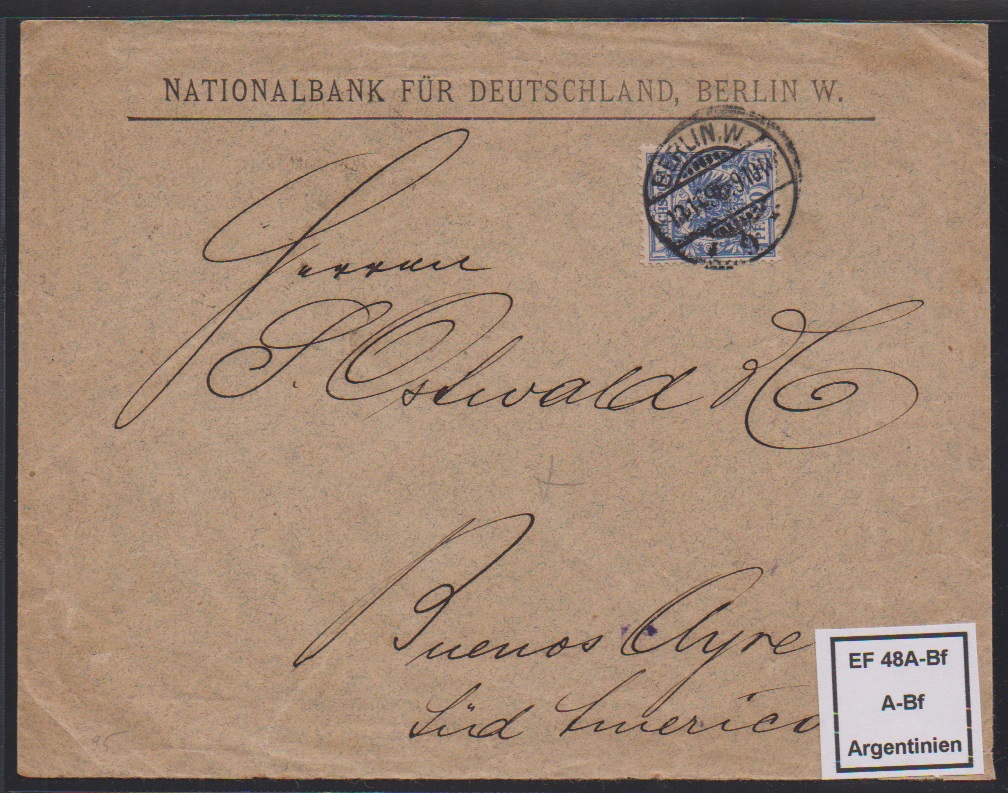 NATIONALBANK FÜR DEUTSCHLAND, BERLIN W.
BERLIN.W.
Herren
Ostwald
Buenos Ayre
Süd America
EF 48A-Bf
A-Bf
Argentinien
95